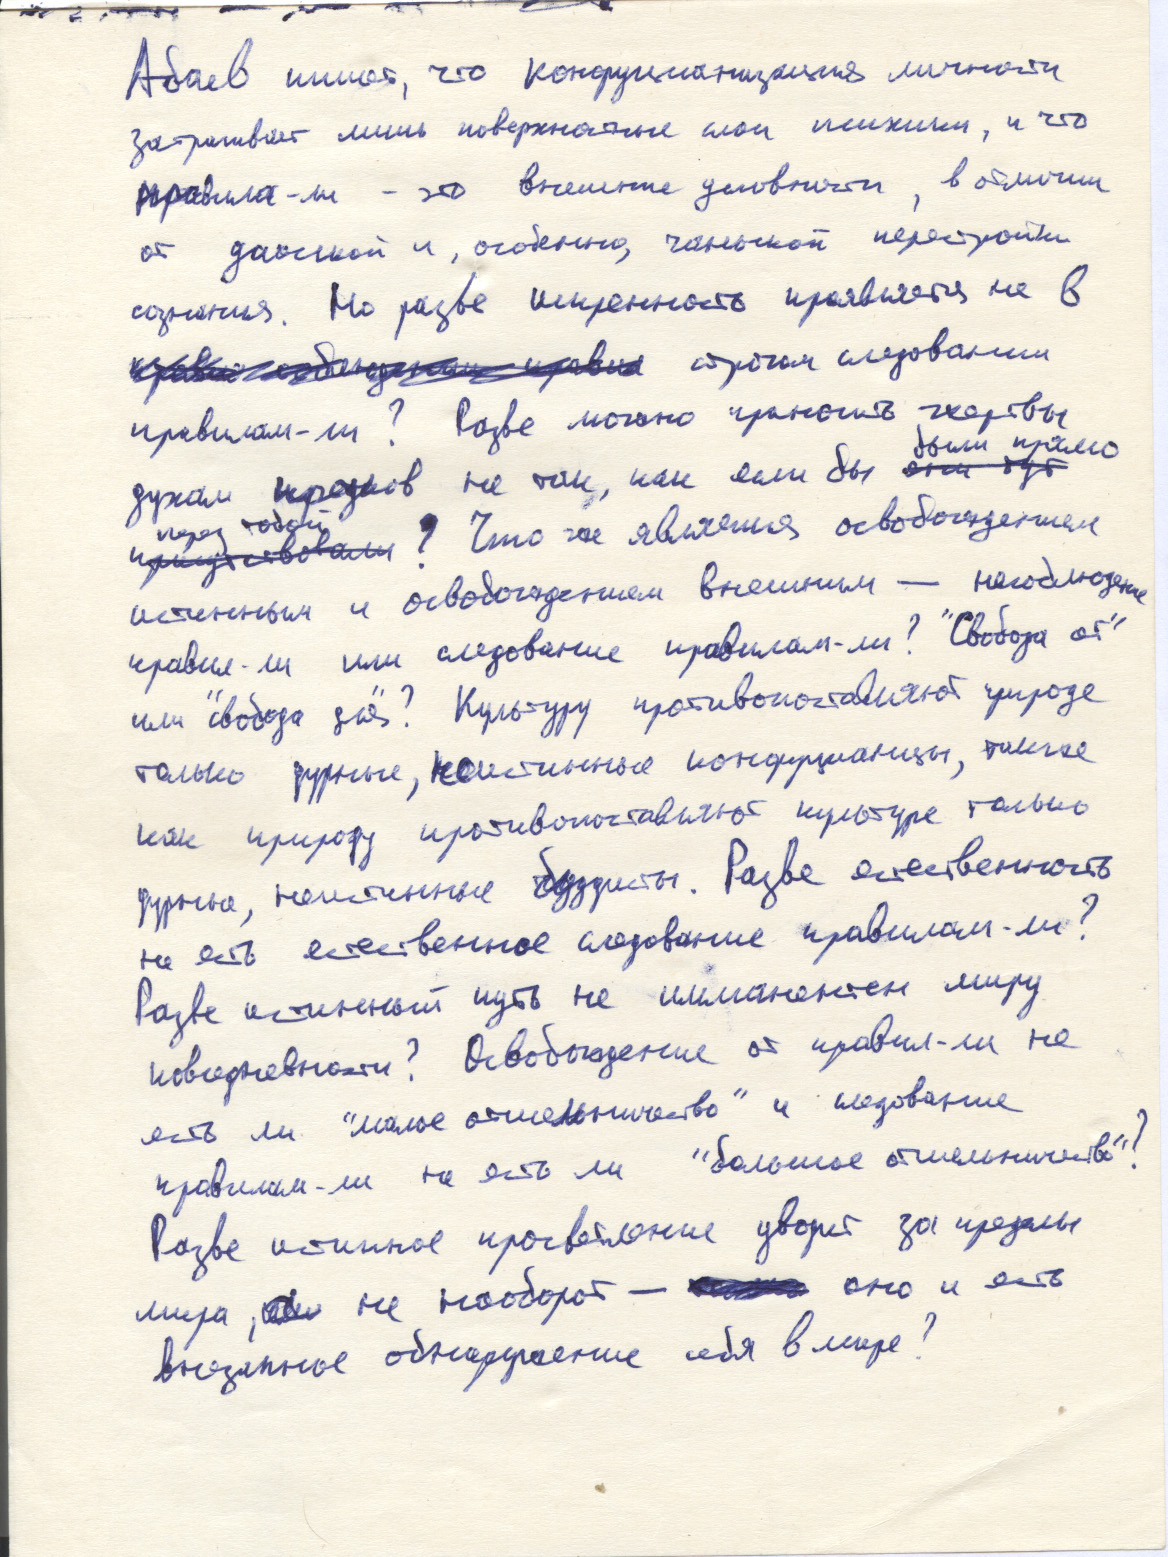 Абаев пишет, что конфуцианизация личности
затрагивает лишь поверхностные слои психики, и что
правила-ли – это внешние условности, в отличии
от даоской и, особенно, чаньской перестройки
сознания. Но разве искренность проявляется не в
строгом следовании
правилам-ли? Разве можно приносить жертвы
духам предков не так, как если бы они тут были прямо
присутствовали перед тобой? Что же является освобождением
истинным и освобождением внешним — несоблюдение
правил-ли или следование правилам-ли? "Свобода от"
или "свобода для"? Культуру противопоставляют природе
только дурные, неистинные конфуцианцы, также
как природу противопоставляют культуре только
дурные, неистинные буддисты. Разве естественность
не есть естественное следование правилам-ли?
Разве истинный путь не имманентен миру
повседневности? Освобождение от правил-ли не
есть ли "малое отшельничество" и следование
правилам-ли не есть ли "большое отшельничество"?
Разве истинное просветление уводит за пределы
мира, не наоборот — оно и есть
внезапное обнаружение себя в мире?